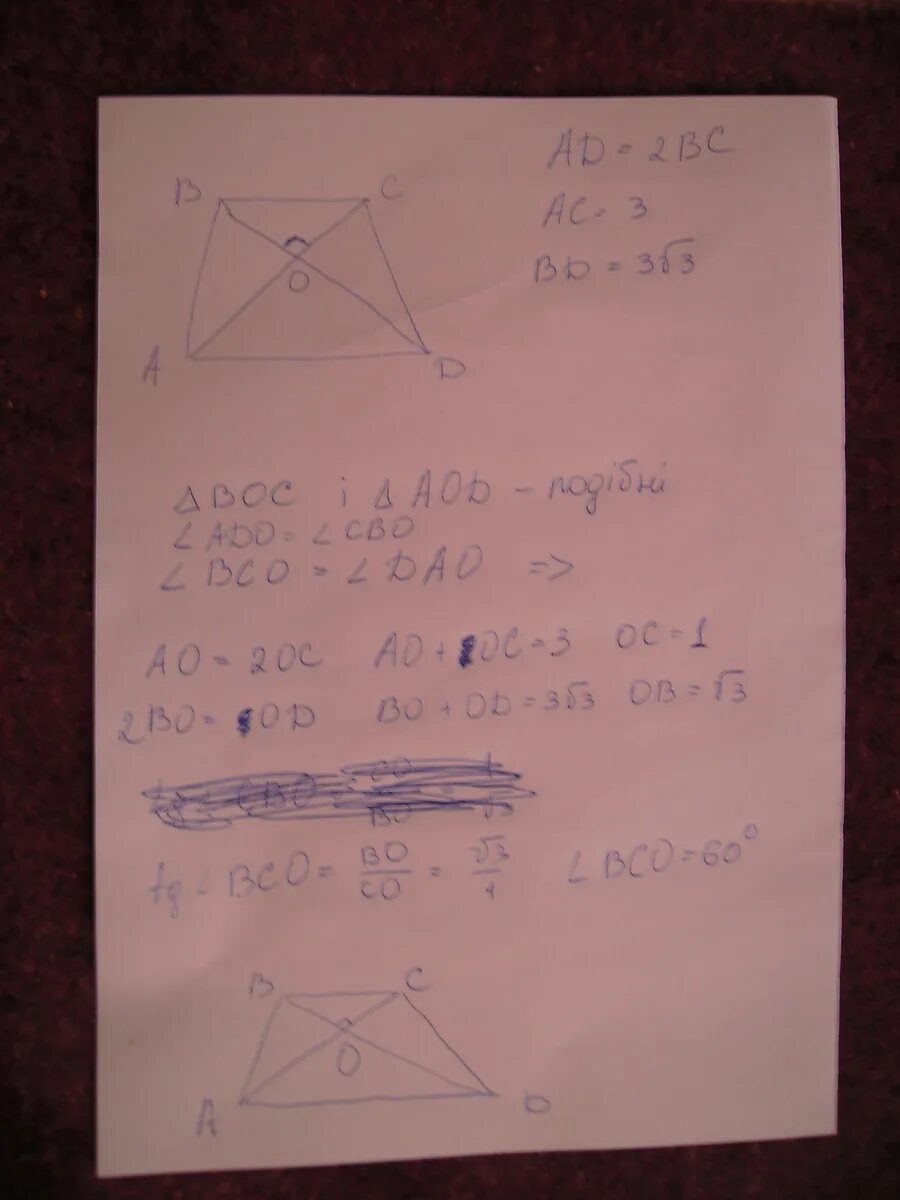 B C
O
A D
AD = 2BC
AC = 3
BD = 3√3
△BOC і △AOD – подібні
∠ADO = ∠CBO
∠BCO = ∠DAO =>
AO = 2OC AO + OC = 3 OC = 1
2BO = OD BO + OD = 3√3 OB = √3
tg∠BCO = BO/CO = √3/1 ∠BCO = 60°
B C
O
A D